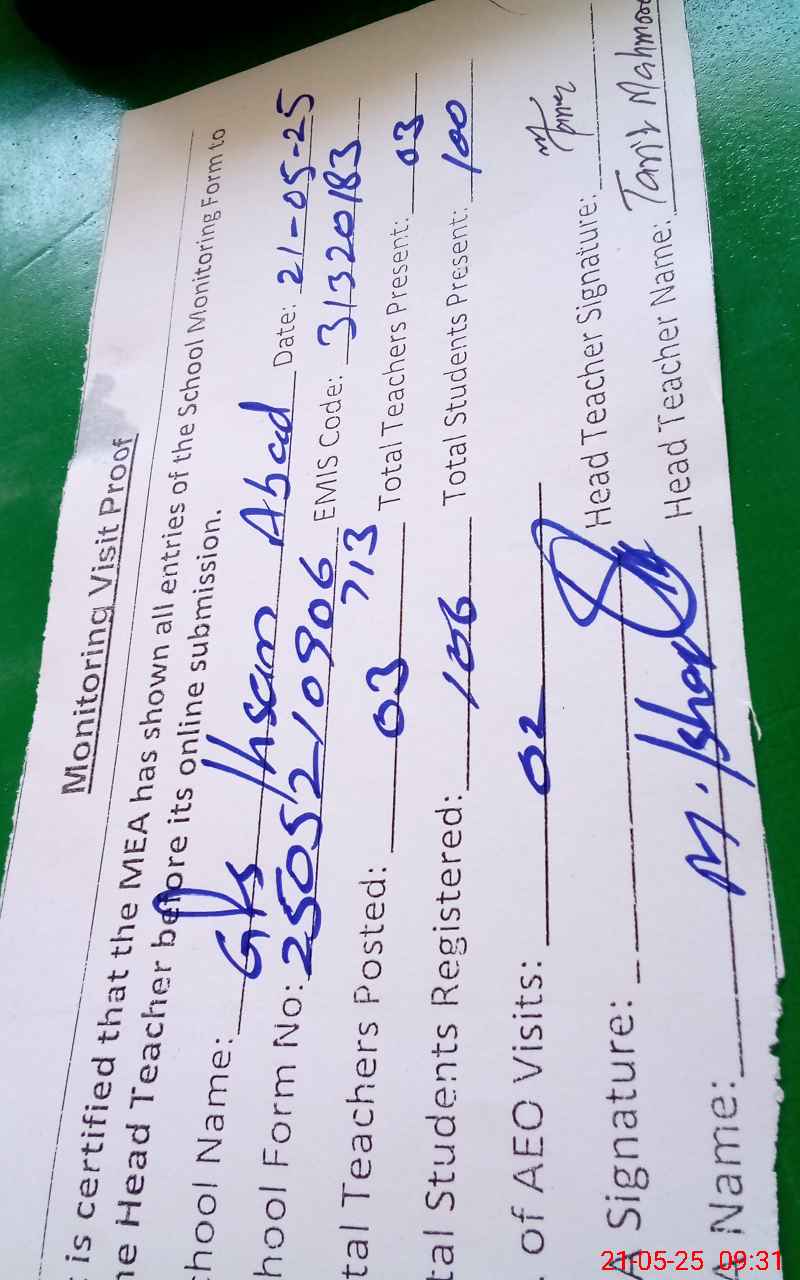 Monitoring Visit Proof
is certified that the MEA has shown all entries of the School Monitoring Form to
he Head Teacher before its online submission.
chool Name: GPS Ihsan Abad Date: 21-05-25
hool Form No: 2505210906713 EMIS Code: 31320183
tal Teachers Posted: 03 Total Teachers Present: 03
tal Students Registered: 106 Total Students Present: 100
. of AEO Visits: 02
A Signature: Head Teacher Signature:
A Name: M. Ishaq Head Teacher Name: Tariq Mahmood
21-05-25 09:31